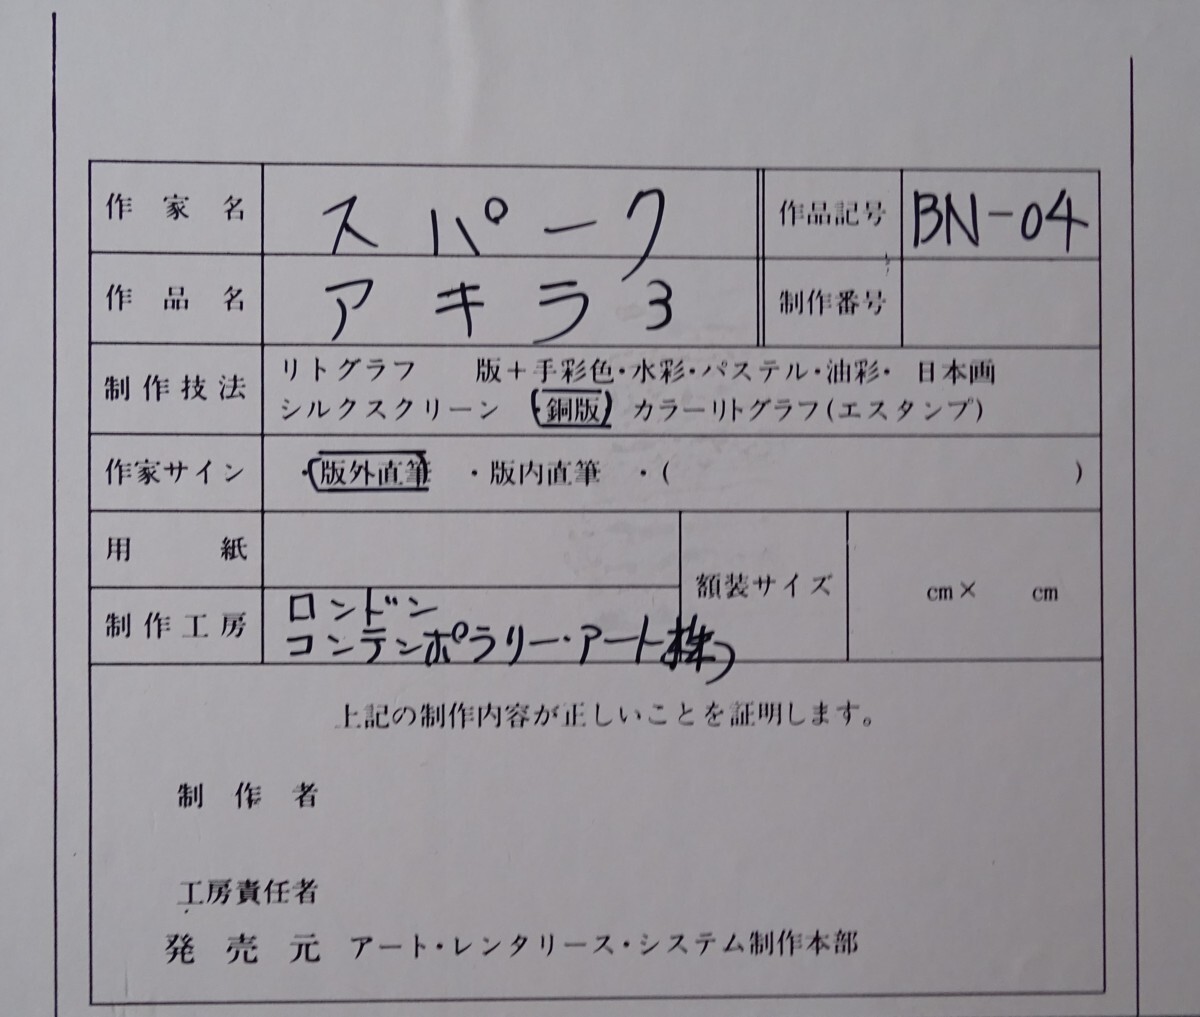 作家名 スパーク 作品記号 BN-04
作品名 アキラ3 制作番号
制作技法 リトグラフ 版+手彩色・水彩・パステル・油彩・ 日本画
シルクスクリーン ・銅版 カラーリトグラフ(エスタンプ)
作家サイン ・版外直筆 ・版内直筆 ・( )
用紙
額装サイズ cm× cm
制作工房 ロンドン
コンテンポラリー・アート株)
上記の制作内容が正しいことを証明します。
制作者
工房責任者
発売元 アート・レンタリース・システム制作本部